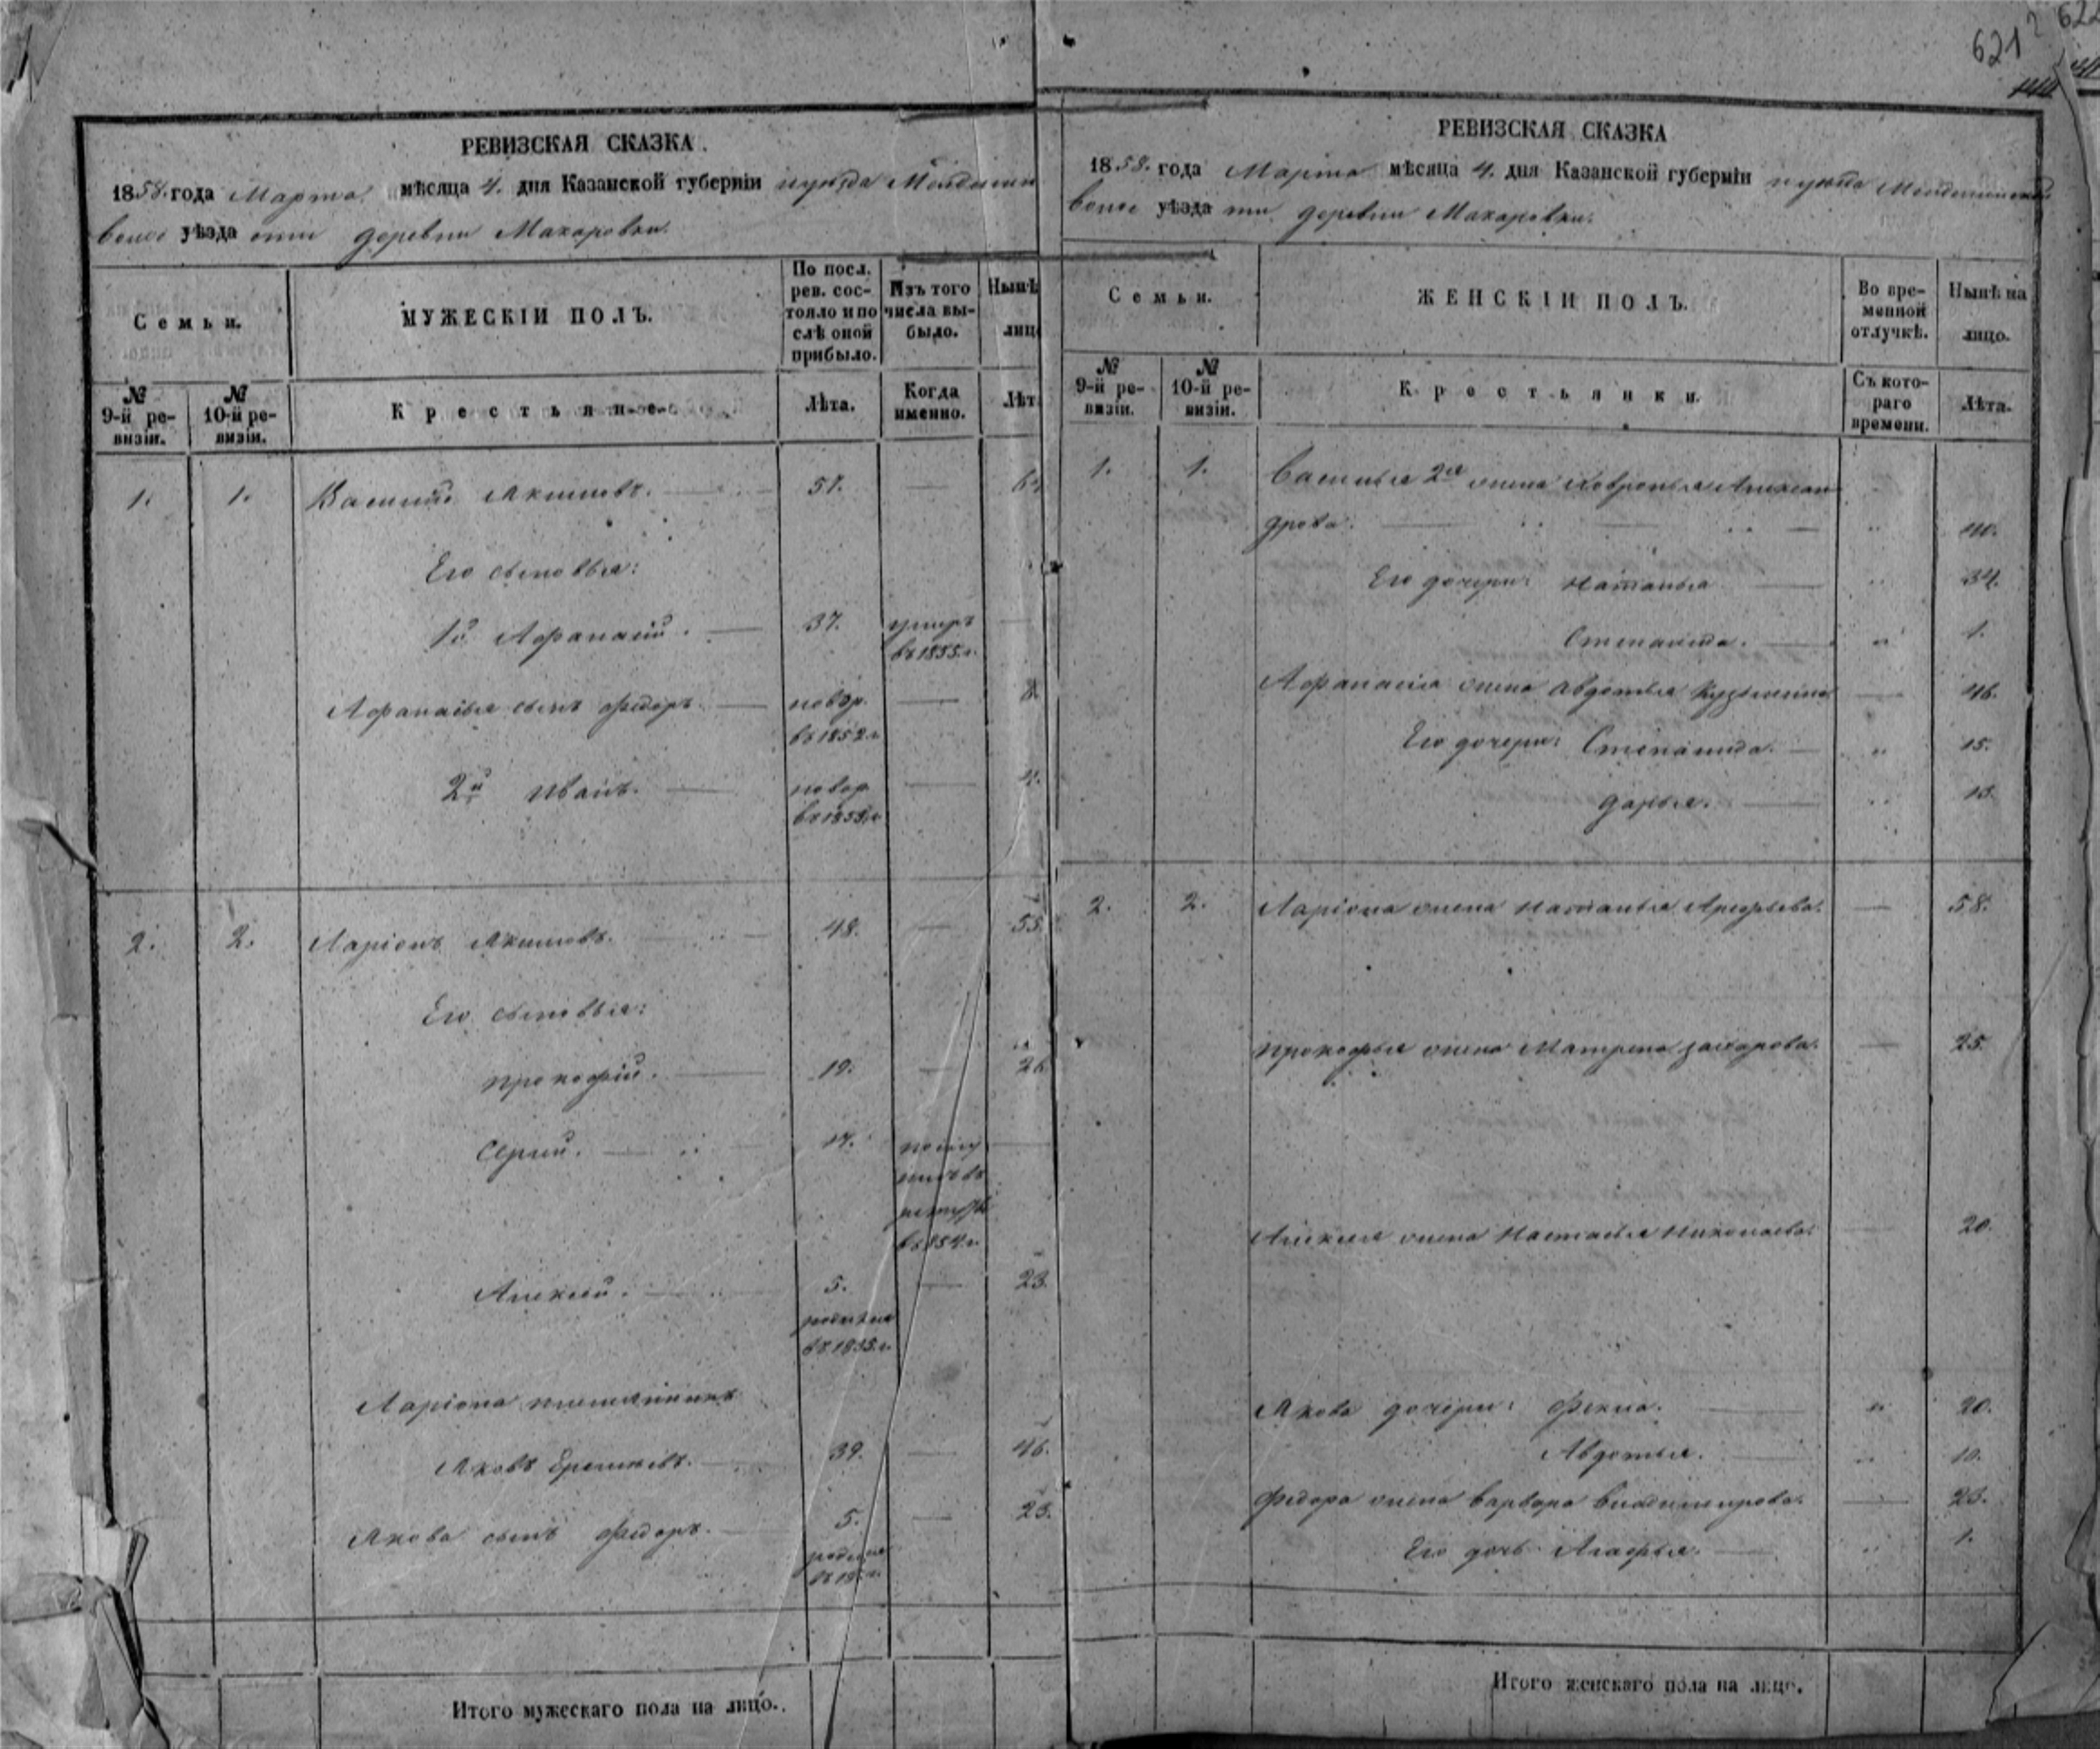 621
РЕВИЗСКАЯ СКАЗКА
1858. года Марта мѣсяца 4. дня Казанской губерніи
уѣзда деревни Макаровки.
Семьи.
МУЖЕСКІЙ ПОЛЪ.
По посл. рев. сос-
тояло и по
слѣ оной
прибыло.
Изъ того
числа вы-
было.
Нынѣ
лиц
№
9-й ре-
визіи.
№
10-й ре-
визіи.
Крестьяне
Лѣта.
Когда
именно.
Лѣт
1. 1. Василій Акимовъ. 57.
Его сыновья:
1й Афанасій. 37. умеръ
въ 1855 г.
Афанасья сынъ Федоръ новор.
въ 1852 г.
2й Иванъ. новор.
2. 2. Ларіонъ Акимовъ. 48. 55.
Его сыновья:
Прокофій. 19. 26
Сергій. 17.
въ 1854 г.
Алексей. 5. 23.
Ларіона племянникъ
Яковъ 39. 46.
Якова сынъ Федоръ. 5. 23.
Итого мужескаго пола на лицо.
РЕВИЗСКАЯ СКАЗКА
1858. года Марта мѣсяца 4. дня Казанской губерніи
уѣзда деревни Макаровки.
Семьи.
ЖЕНСКІЙ ПОЛЪ.
Во вре-
менной
отлучкѣ.
Нынѣ на
лицо.
№
9-й ре-
визіи.
№
10-й ре-
визіи.
Крестьянки.
Съ кото-
раго
времени.
Лѣта.
1. 1. Василья 2я жена Ховронья Алексан
дрова. 40.
Его дочери: Наталья 34.
Степанида. 1.
Афанасія жена Авдотья Кузьмина 46.
Его дочери: Степанида. 15.
Дарья. 13.
2. 2. Ларіона жена Наталья Арефьева. 58.
Прокофья жена Матрена Захарова. 25.
Алексея жена Настасья Николаева. 20.
Якова дочери: Фекла. 20.
Авдотья. 10.
Федора жена Варвара Владимирова. 23.
Его дочь Агафья. 1.
Итого женскаго пола на лицо.